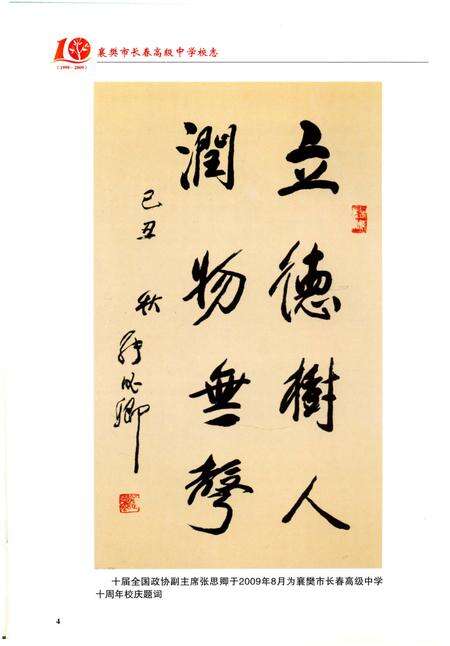 10
(1999-2009)
襄樊市长春高级中学校志
立德樹人
潤物無聲
己丑 秋 张思卿
十届全国政协副主席张思卿于2009年8月为襄樊市长春高级中学
十周年校庆题词
4